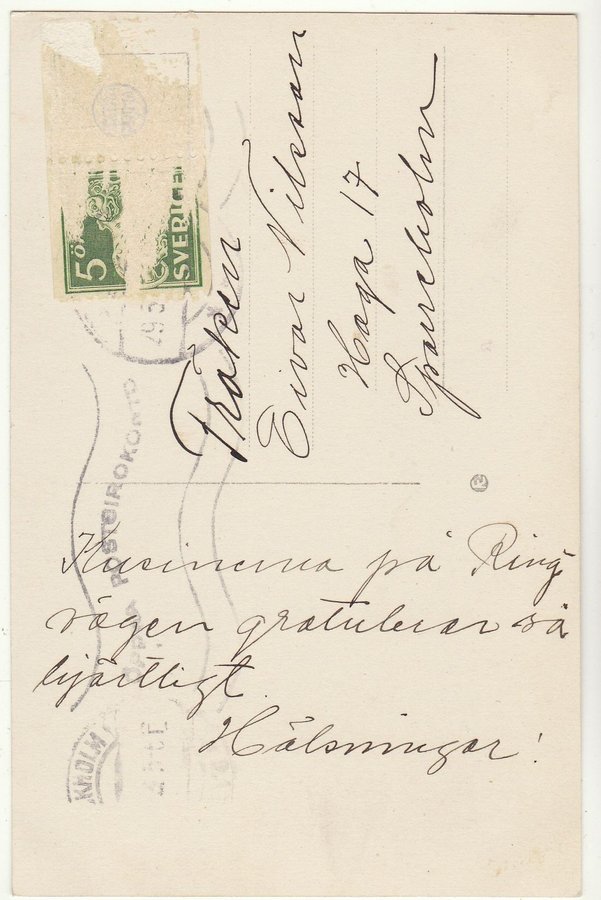 5 ÖRE
SVERIGE
29.5
ÖPPNA POSTGIROKONTO
KHOLM
Fröken
Eivor Nilsson
Haga 17
Sparreholm
Kusinerna på Ring-
vägen gratulerar så
hjärtligt.
Hälsningar!